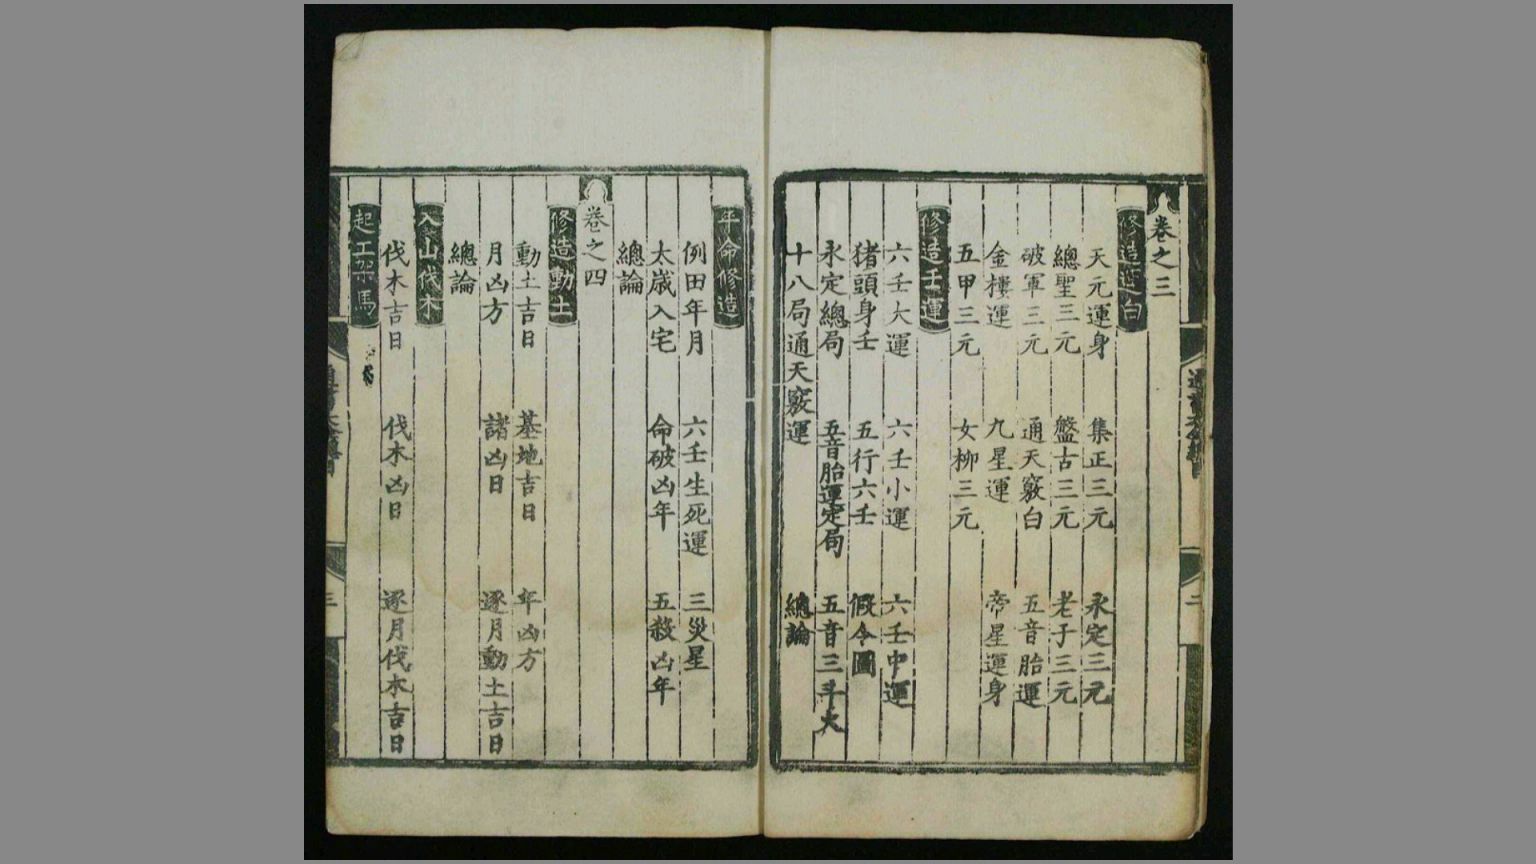 卷之三
修造遁白
天元運身 集正三元 永定三元
總聖三元 盤古三元 老子三元
破軍三元 通天竅白 五音胎運
金樓運 九星運 帝星運身
五甲三元 女柳三元
修造壬運
六壬大運 六壬小運 六壬中運
猪頭身壬 五行六壬 假令圖
永定總局 五音胎運定局 五音三斗火
十八局通天竅運 總論
年命修造
例田年月 六壬生死運 三災星
太歲入宅 命破凶年 五殺凶年
總論
卷之四
修造動土
動土吉日 基地吉日 年凶方
月凶方 諸凶日 逐月動土吉日
總論
入山伐木
伐木吉日 伐木凶日 逐月伐木吉日
起工架馬
二
三